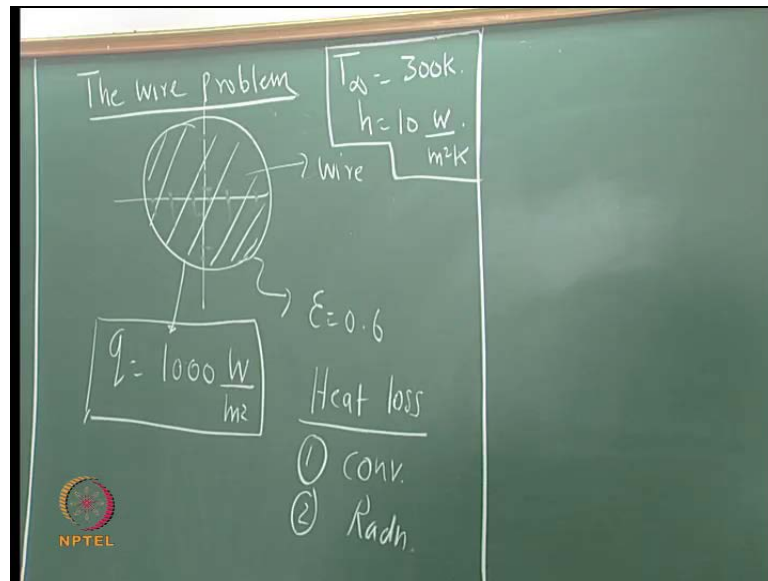 The wire problem
T∞ = 300k.
h = 10 W/m²K.
wire
ε = 0.6
q = 1000 W/m²
Heat loss
① Conv.
② Radn.
NPTEL